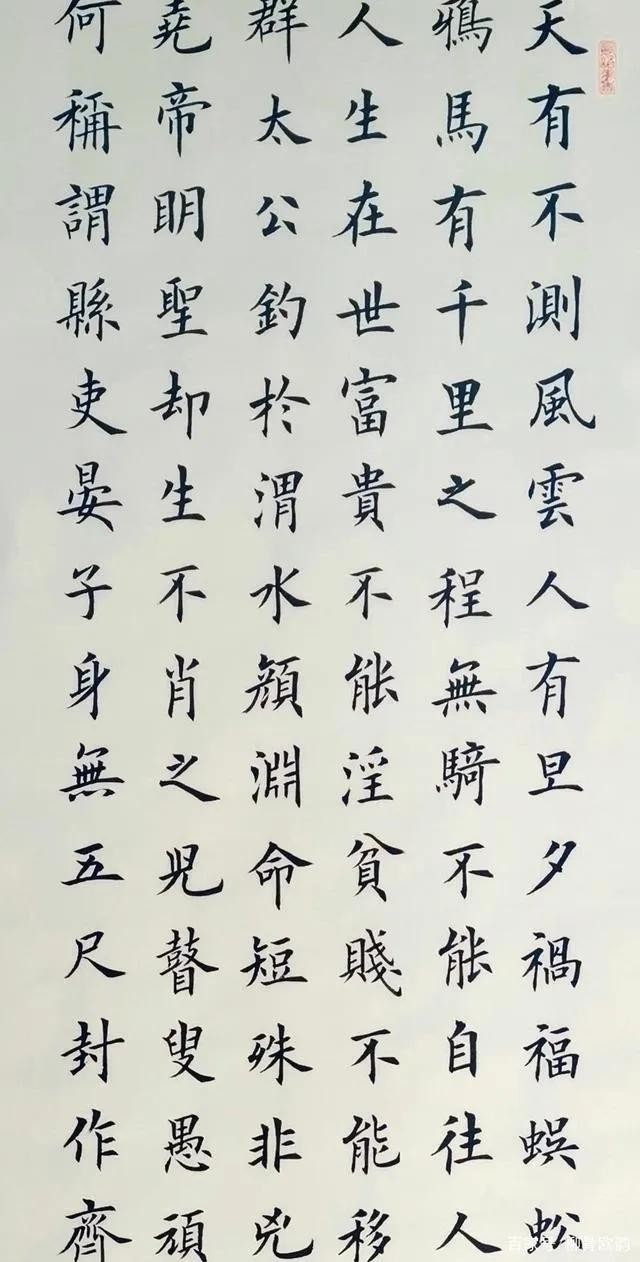 天有不測風雲人有旦夕禍福蜈蚣
鴉馬有千里之程無騎不能自往人
人生在世富貴不能淫貧賤不能移
群太公釣於渭水顔淵命短殊非兇
堯帝眀聖却生不肖之兒瞽叟愚頑
何稱謂縣吏晏子身無五尺封作齊
百家号/柳骨欧韵